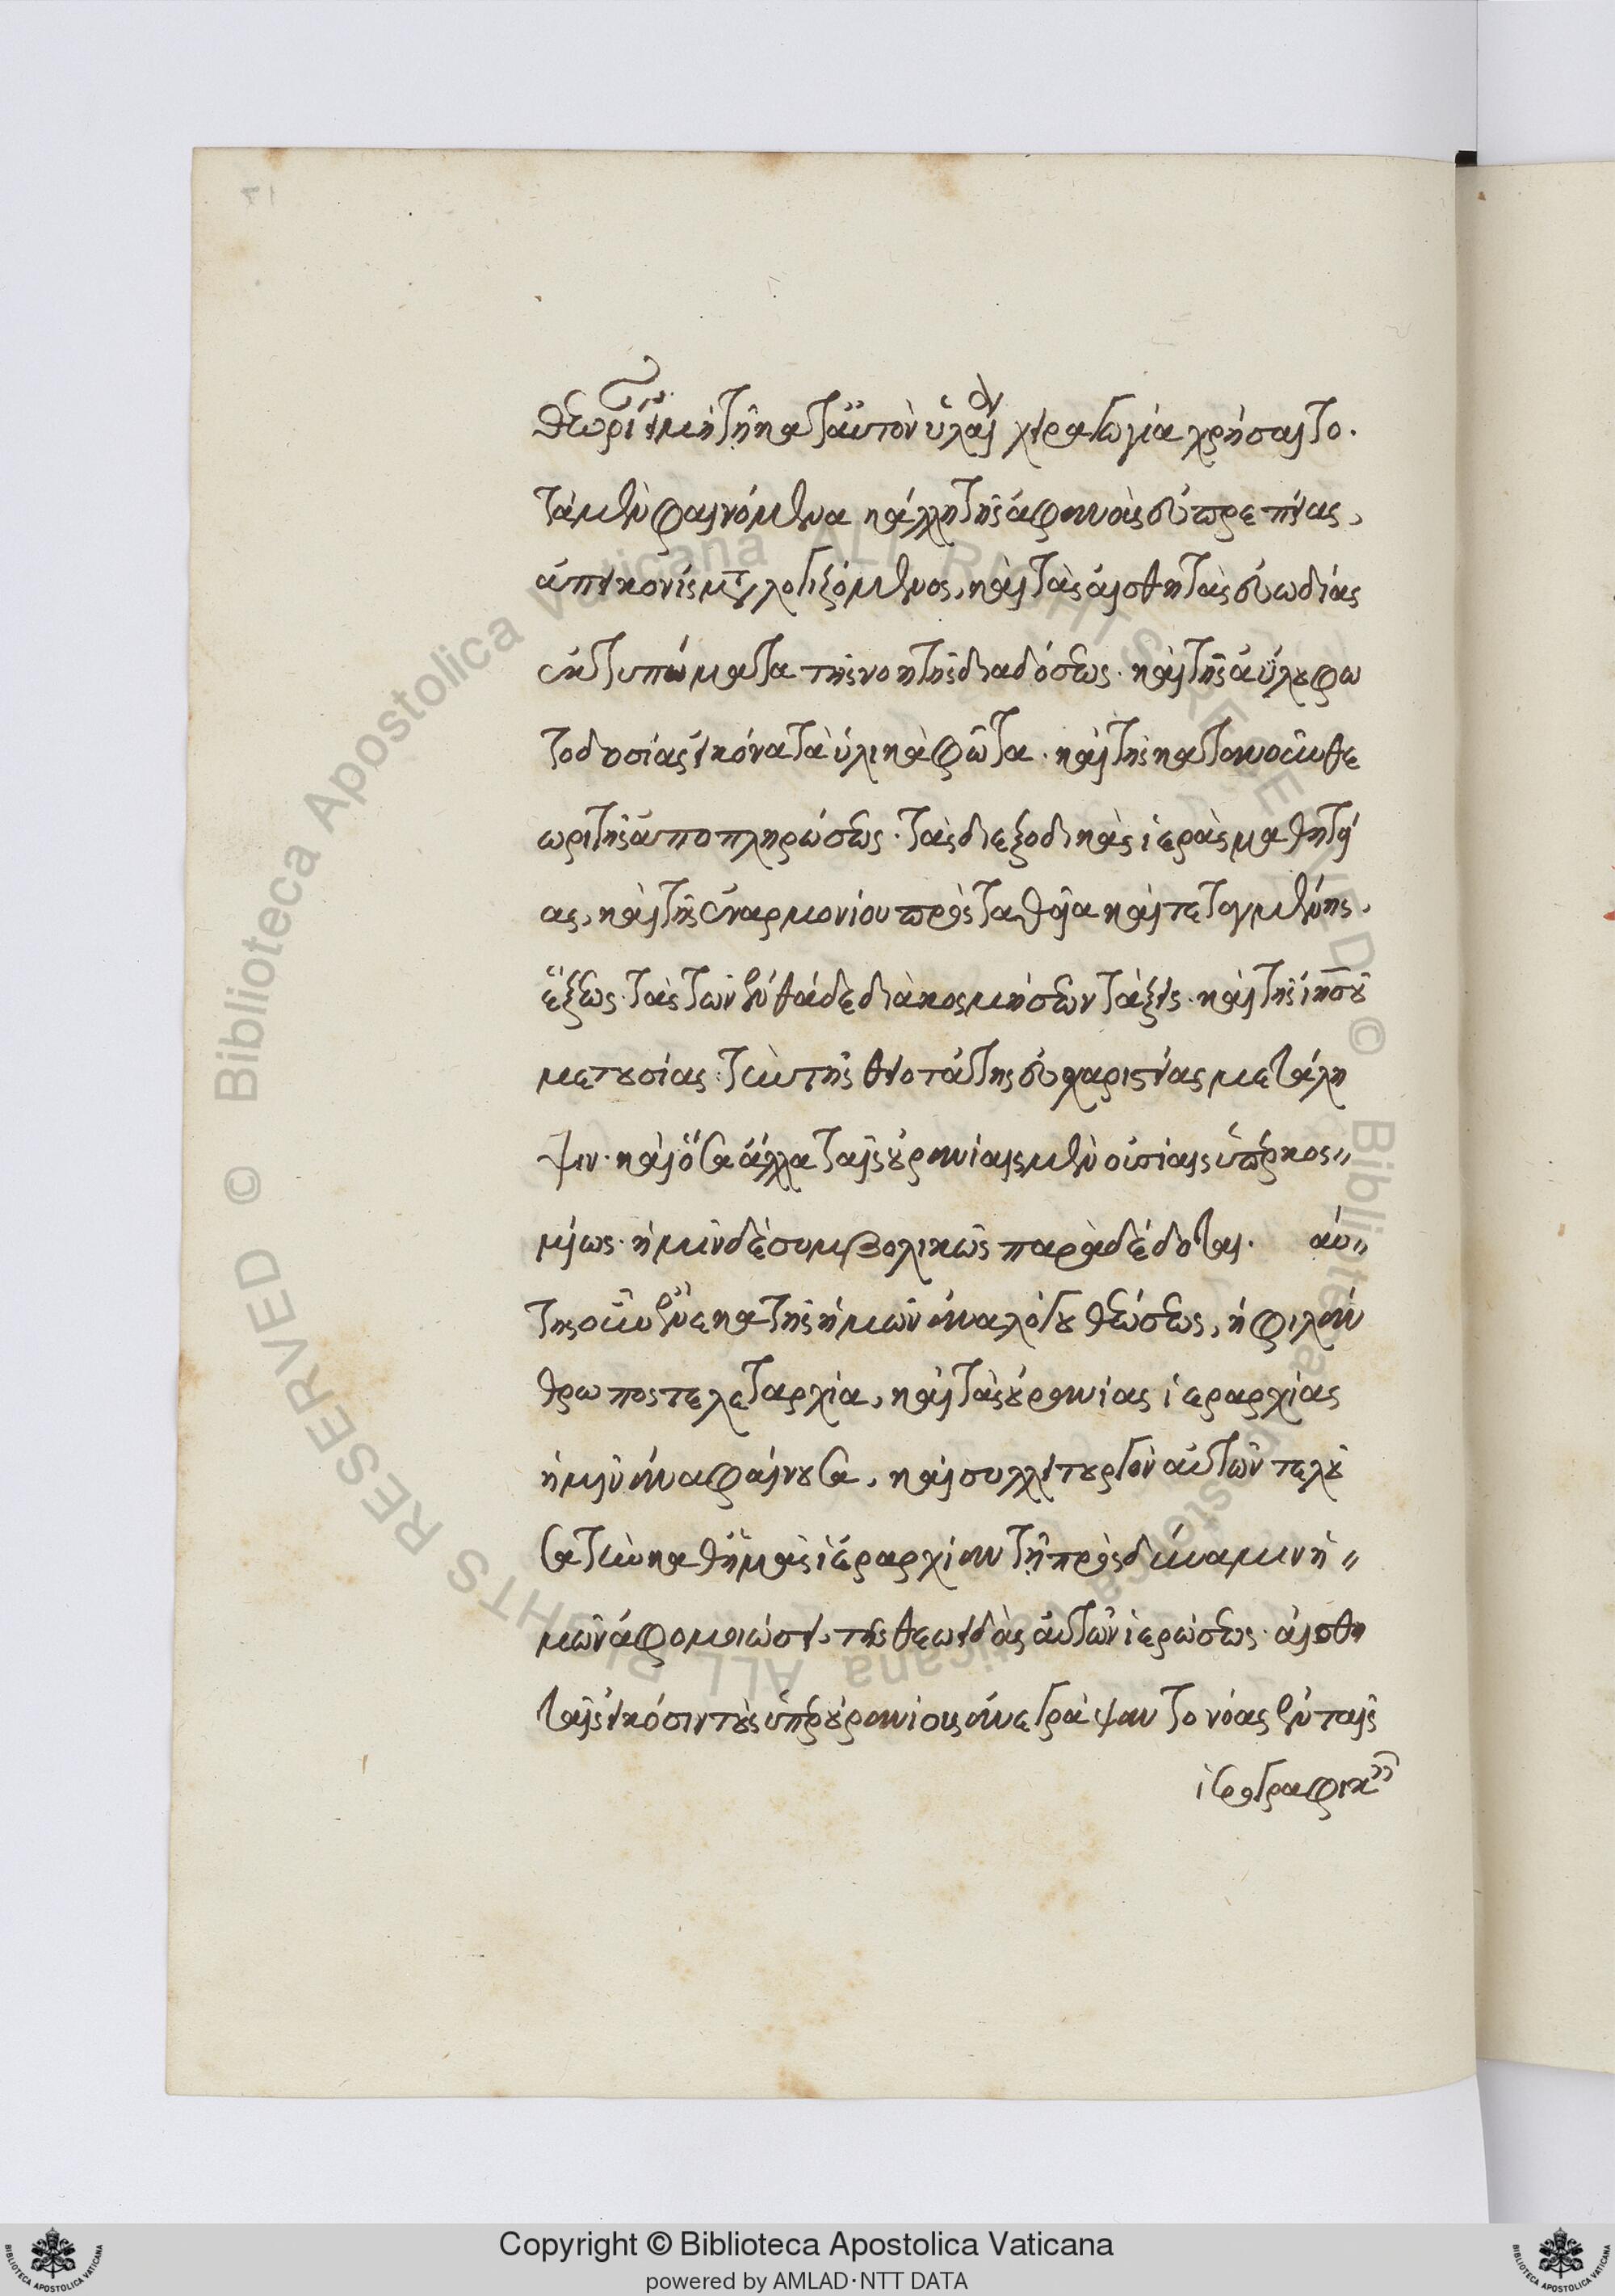 θεωρίαν, εἰ μὴ τῇ κατ' αὐτὸν ὑλαίᾳ χειραγωγίᾳ χρήσαιτο.
τὰ μὲν φαινόμενα κάλλη τῆς ἀφανοῦς εὐπρεπείας,
ἀπεικονίσματα λογιζόμενος, καὶ τὰς αἰσθητὰς εὐωδίας
ἐκτυπώματα τῆς νοητῆς διαδόσεως. καὶ τῆς ἀΰλου φω
τοδοσίας εἰκόνα τὰ ὑλικὰ φῶτα. καὶ τῆς κατὰ νοῦν θε
ωριτῆς ἀποπληρώσεως. τὰς διεξοδικὰς ἱερὰς μαθητεί
ας, καὶ τῆς ἐναρμονίου πρὸς τα θεῖα καὶ τεταγμένης.
ἕξεως. τὰς τῶν ἐνθάδε διακοσμήσεων τάξεις. καὶ τῆς ἰησοῦ
μετουσίας. τὴν τῆς θειοτάτης εὐχαριστίας μετάλη
ψιν. καὶ ὅσα ἄλλα ταῖς οὐρανίαις μὲν οὐσίαις ὑπερκοσ〃
μίως. ἡμῖν δὲ συμβολικῶς παραδέδοται. αὐ〃
τῆς οὖν ἕνεκα τῆς ἡμῶν ἀναλόγου θεώσεως, ἡ φιλάν
θρωπος τελεταρχία, καὶ τὰς οὐρανίας ἱεραρχίας
ἡμῖν ἀναφαίνουσα, καὶ συλλειτουργὸν αὐτῶν τελοῦ
σα τὴν καθ' ἡμᾶς ἱεραρχίαν τῇ πρὸς δύναμιν ἡ〃
μῶν ἀφομοιώσει, τῆς θεωειδὰς αὐτῶν ἱερώσεως. αἰσθη
ταῖς εἰκόσιν τοὺς ὑπερουρανίους ἀνεγράψαντο νόας ἐν ταῖς
ἱερογραφικ
Copyright © Biblioteca Apostolica Vaticana
powered by AMLAD·NTT DATA